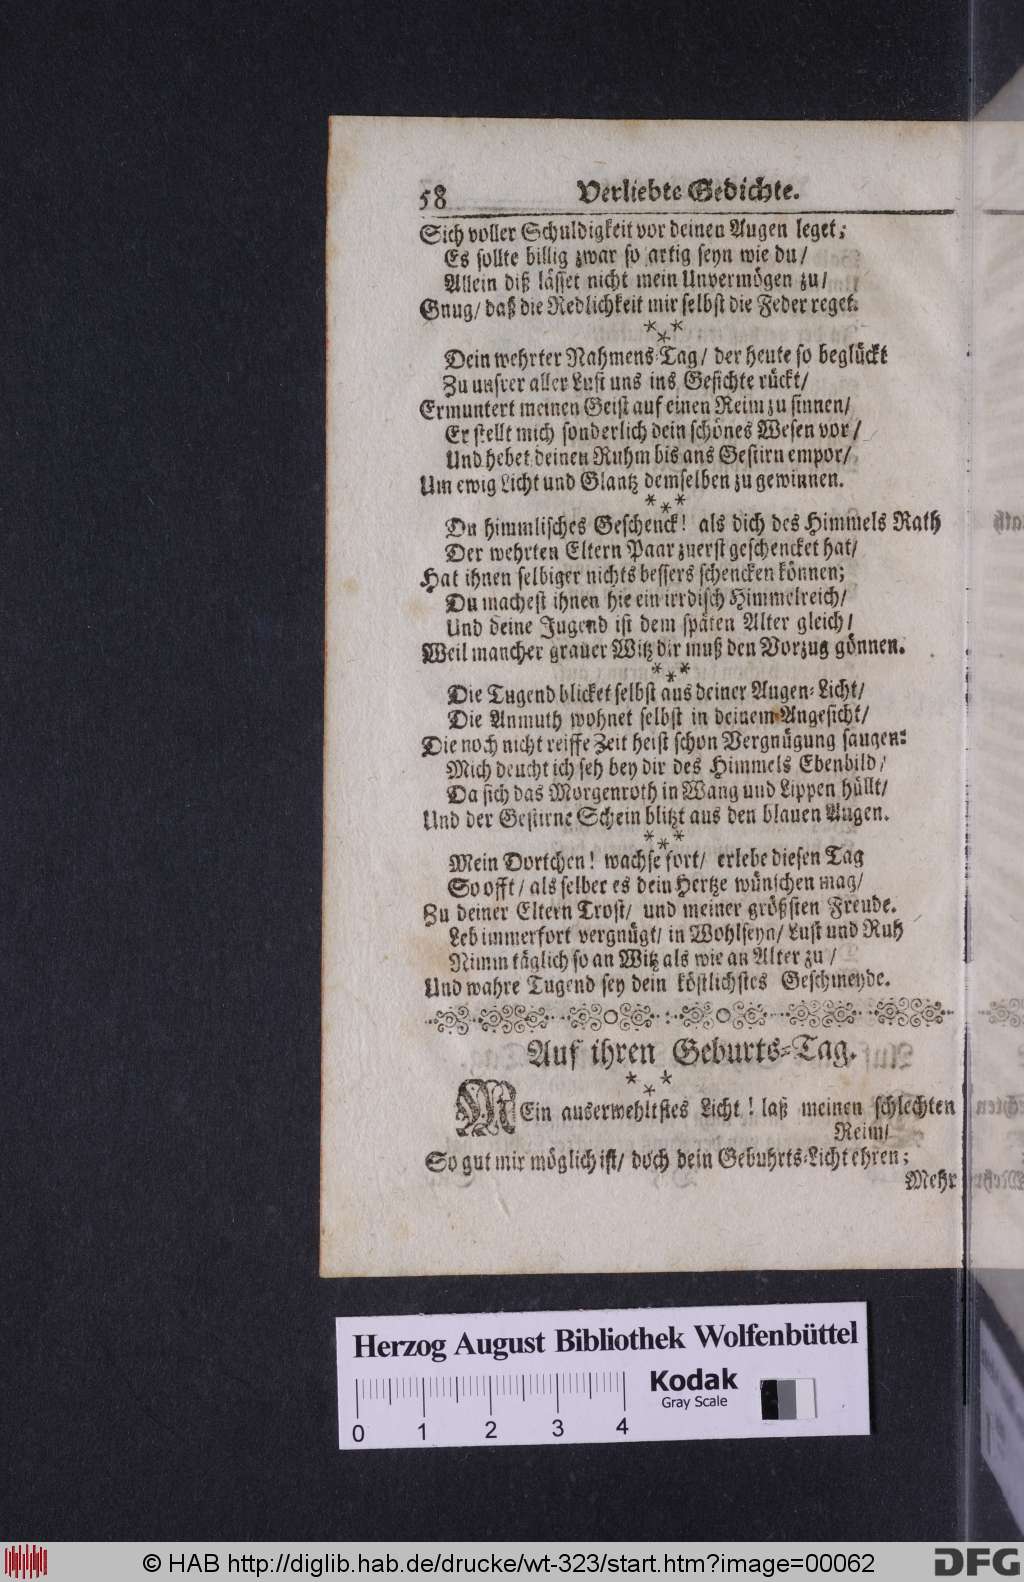 58 Verliebte Gedichte.
Sich voller Schuldigkeit vor deinen Augen leget;
Es sollte billig zwar so artig seyn wie du/
Allein diß lässet nicht mein Unvermögen zu/
Gnug/ daß die Redlichkeit mir selbst die Feder reget.
***
Dein wehrter Nahmens-Tag/ der heute so beglückt
Zu unsrer aller Lust uns ins Gesichte rückt/
Ermuntert meinen Geist auf einen Reim zu sinnen/
Er stellt mich sonderlich dein schönes Wesen vor/
Und hebet deinen Ruhm bis ans Gestirn empor/
Um ewig Licht und Glantz demselben zu gewinnen.
***
Du himmlisches Geschenck! als dich des Himmels Rath
Der wehrten Eltern Paar zuerst geschencket hat/
Hat ihnen selbiger nichts bessers schencken können;
Du machest ihnen hie ein irrdisch Himmelreich/
Und deine Jugend ist dem späten Alter gleich/
Weil mancher grauer Witz dir muß den Vorzug gönnen.
***
Die Tugend blicket selbst aus deiner Augen-Licht/
Die Anmuth wohnet selbst in deinem Angesicht/
Die noch nicht reiffe Zeit heist schon Vergnügung saugen:
Mich deucht ich seh bey dir des Himmels Ebenbild/
Da sich das Morgenroth in Wang und Lippen hüllt/
Und der Gestirne Schein blitzt aus den blauen Augen.
***
Mein Dortchen! wachse fort/ erlebe diesen Tag
So offt/ als selber es dein Hertze wünschen mag/
Zu deiner Eltern Trost/ und meiner größsten Freude.
Leb immerfort vergnügt/ in Wohlseyn/ Lust und Ruh
Nimm täglich so an Witz als wie an Alter zu/
Und wahre Tugend sey dein köstlichstes Geschmeyde.
Auf ihren Geburts-Tag.
***
MEin auserwehltstes Licht! laß meinen schlechten
Reim/
So gut mir möglich ist/ doch dein Gebuhrts-Licht ehren;
Mehr
Herzog August Bibliothek Wolfenbüttel
Kodak
Gray Scale
0 1 2 3 4
© HAB http://diglib.hab.de/drucke/wt-323/start.htm?image=00062
DFG